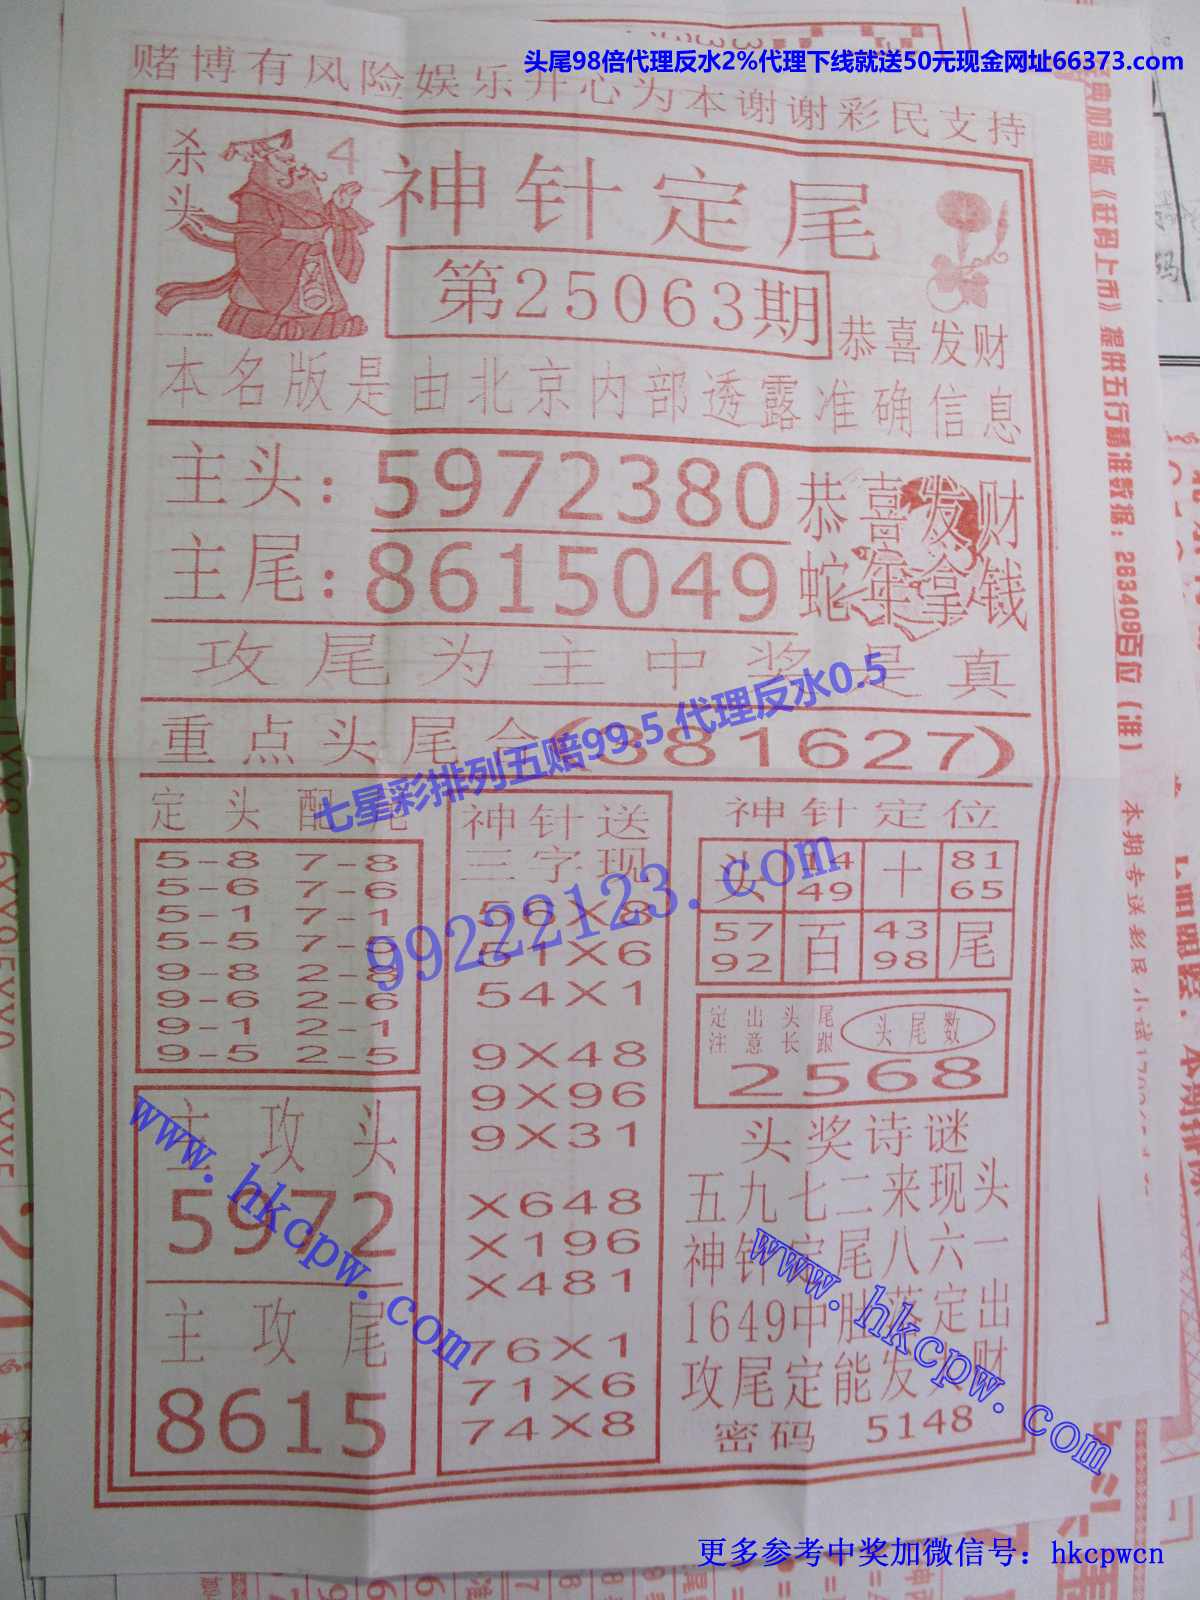 头尾98倍代理反水2%代理下线就送50元现金网址66373.com
赌博有风险娱乐开心为本谢谢彩民支持
杀头
4
神针定尾
第25063期
恭喜发财
本名版是由北京内部透露准确信息
主头：5972380
主尾：8615049
恭喜发财
蛇年拿钱
攻尾为主中奖是真
重点头尾合(381627)
七星彩排列五赔99.5 代理反水0.5
99222123.com
定头配尾
5-8 7-8
5-6 7-6
5-1 7-1
5-5 7-5
9-8 2-8
9-6 2-6
9-1 2-1
9-5 2-5
主攻头
5972
主攻尾
8615
神针送
三字现
59X8
51X6
54X1
9X48
9X96
9X31
X648
X196
X481
76X1
71X6
74X8
神针定位
头 14 49 十 81 65
57 92 百 43 98 尾
定出头尾
注意长跟
头尾数
2568
头奖诗谜
五九七二来现头
神针定尾八六一
1649中肚落定出
攻尾定能发大财
密码 5148
www.hkcpw.com
www.hkcpw.com
加急版《赶码上市》提供五行精准数据：263409百位（准）
本期专送彩民小试
更多参考中奖加微信号：hkcpwcn